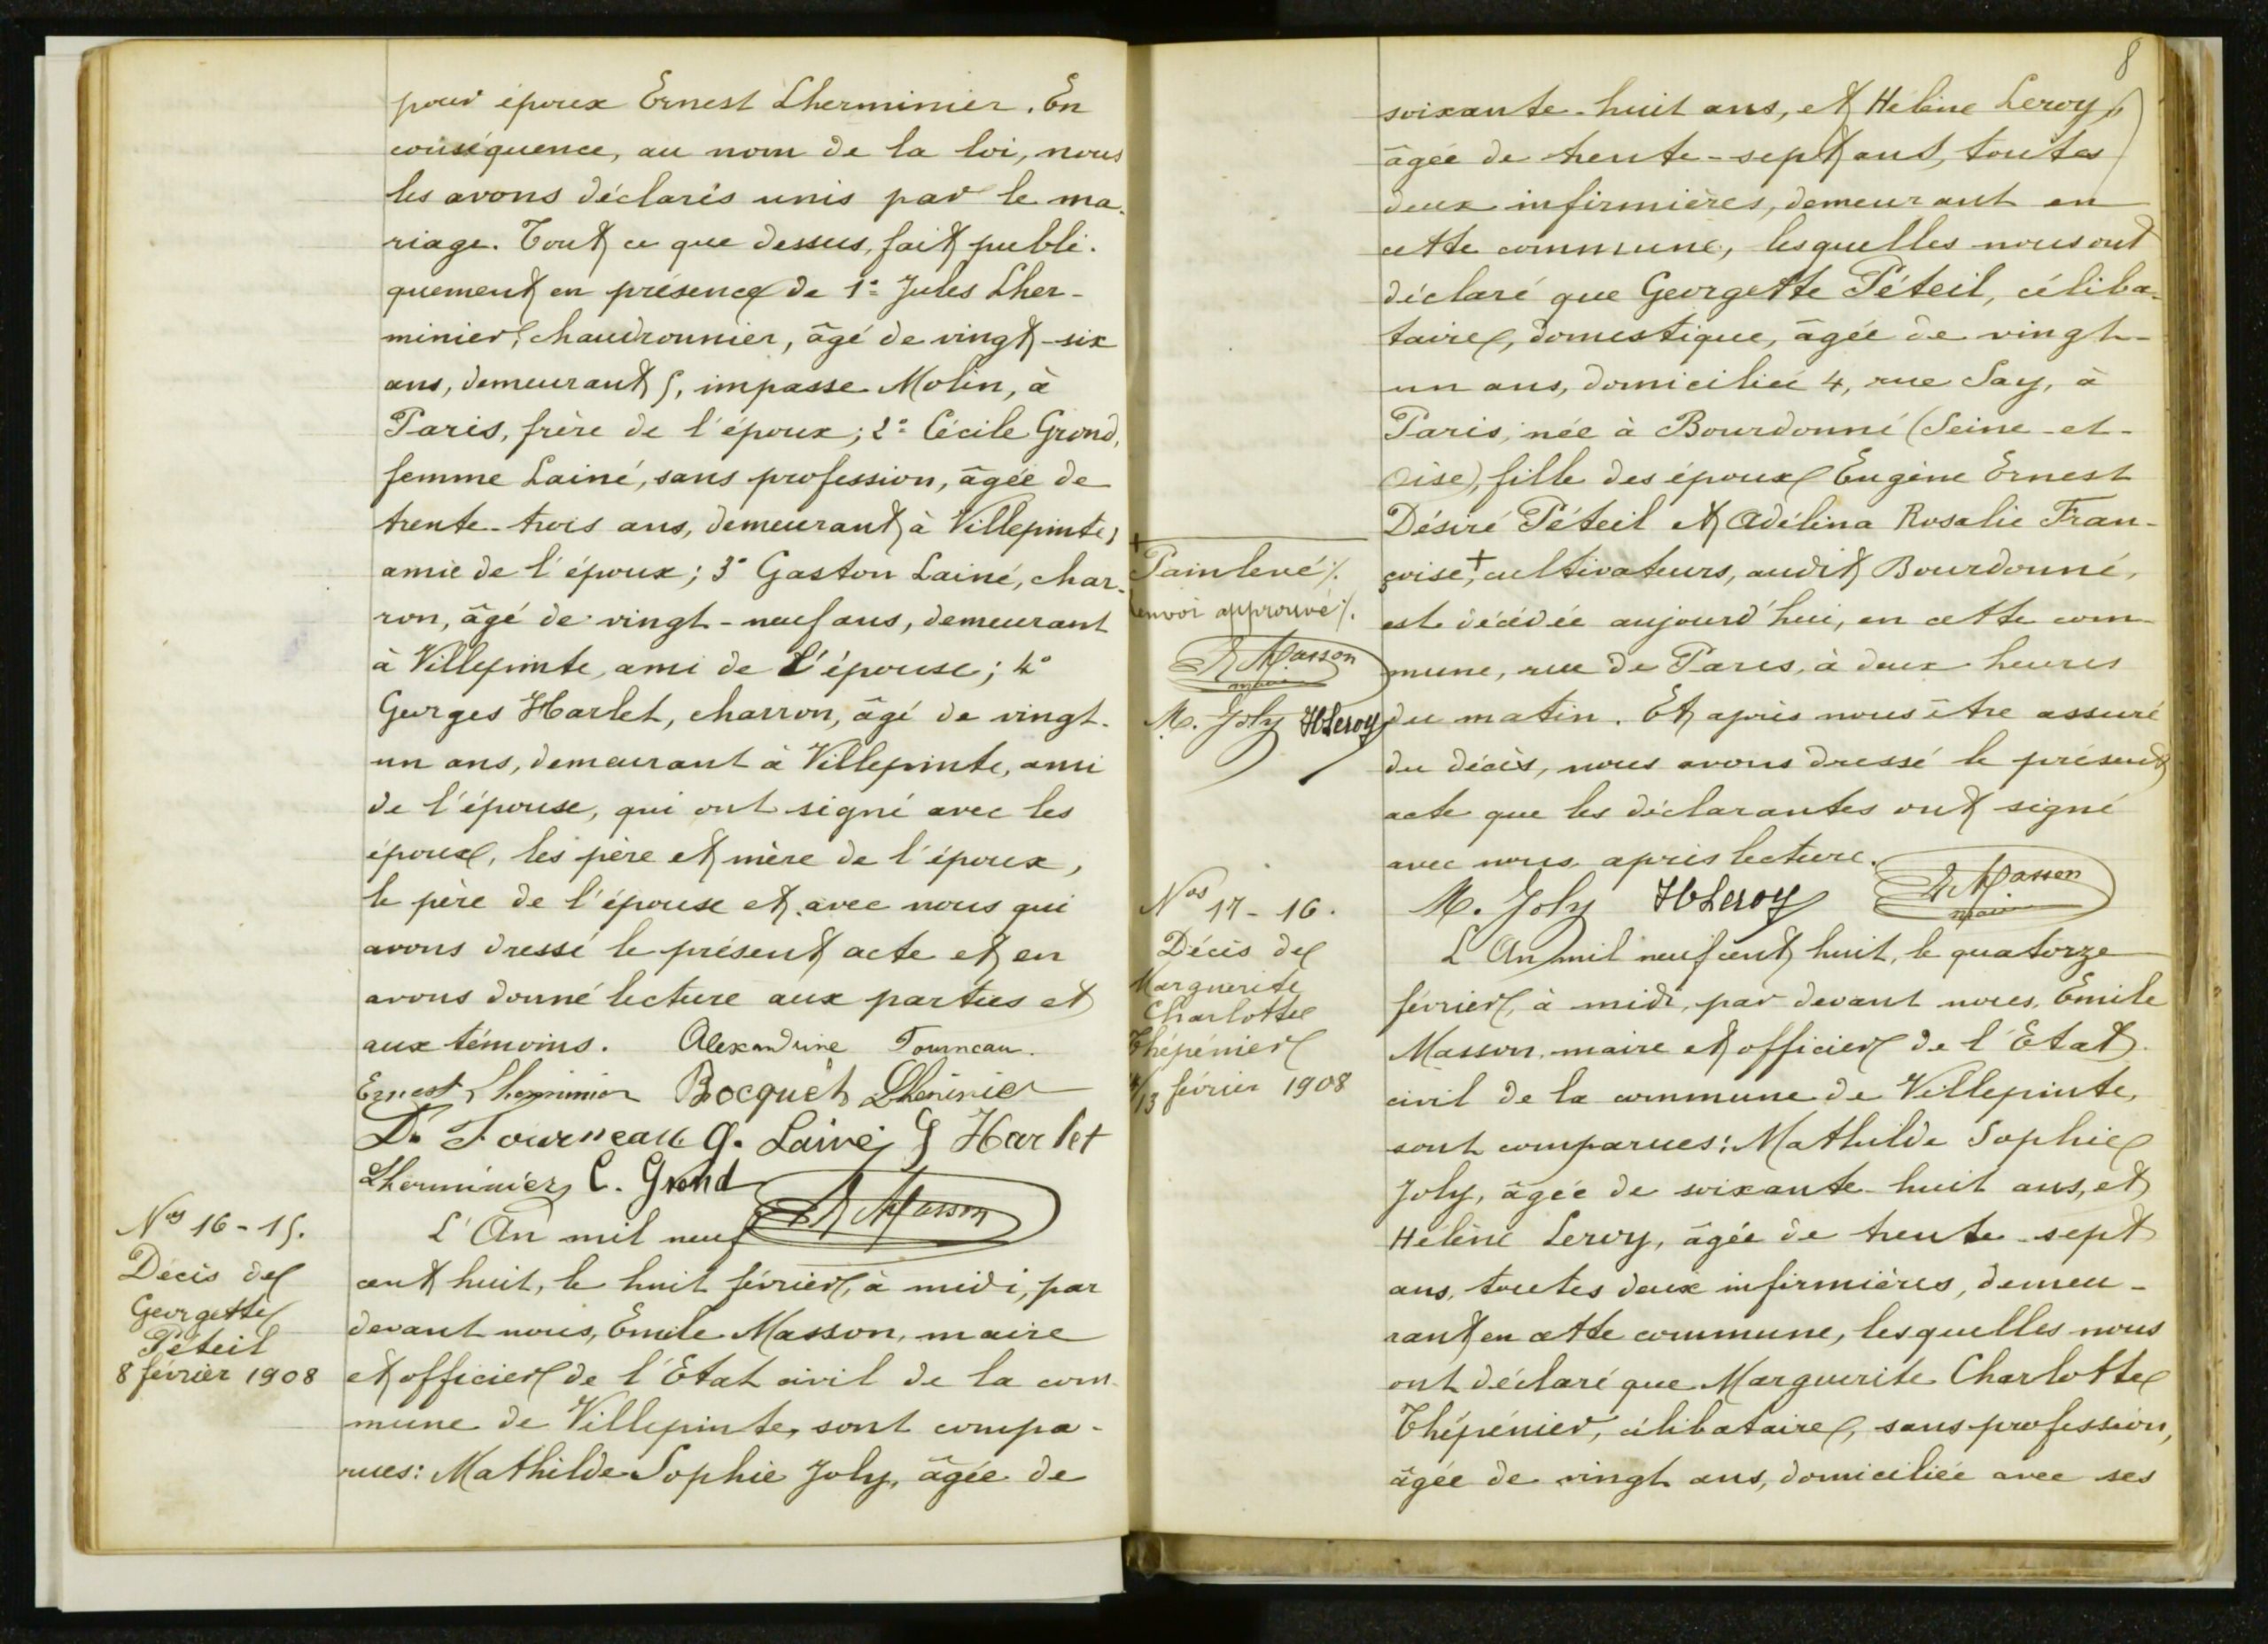 pour époux Ernest Lherminier. En
conséquence, au nom de la loi, nous
les avons déclarés unis par le ma-
riage. Tout ce que dessus, fait publi-
quement en présence de 1° Jules Lher-
minier, chaudronnier, âgé de vingt-six
ans, demeurant 5, impasse Molin, à
Paris, frère de l'époux; 2° Cécile Grond,
femme Lainé, sans profession, âgée de
trente-trois ans, demeurant à Villepinte,
amie de l'époux; 3° Gaston Lainé, char-
ron, âgé de vingt-neuf ans, demeurant
à Villepinte, ami de l'épouse; 4°
Georges Harlet, charron, âgé de vingt-
un ans, demeurant à Villepinte, ami
de l'épouse, qui ont signé avec les
époux, les père et mère de l'époux,
le père de l'épouse et avec nous qui
avons dressé le présent acte et en
avons donné lecture aux parties et
aux témoins. Alexandrine Tourneau.
Ernest Lherminier Bocquet Lherminier
D. Tourneau G. Lainé G Harlet
Lherminier C. Grond
E Masson
Nos 16-15.
Décès de
Georgette
Péteil
8 février 1908
L'An mil neuf
cent huit, le huit février, à midi, par
devant nous, Emile Masson, maire
et officier de l'Etat civil de la com-
mune de Villepinte, sont compa-
rues: Mathilde Sophie Joly, âgée de
8
soixante-huit ans, et Hélène Leroy,
âgée de trente-sept ans, toutes
deux infirmières, demeurant en
cette commune, lesquelles nous ont
déclaré que Georgette Péteil, céliba-
taire, domestique, âgée de vingt-
un ans, domiciliée 4, rue Say, à
Paris, née à Bourdonné (Seine-et-
Oise), fille des époux Eugène Ernest
Désiré Péteil et Adélina Rosalie Fran-
çoise,+ cultivateurs, audit Bourdonné,
est décédée aujourd'hui, en cette com-
mune, rue de Paris, à deux heures
du matin. Et après nous être assuré
du décès, nous avons dressé le présent
acte que les déclarantes ont signé
avec nous après lecture.
M. Joly H Leroy E Masson
maire
+
Painlevé %.
Renvoi approuvé %.
E Masson
maire
M. Joly H Leroy
Nos 17-16.
Décès de
Marguerite
Charlotte
Thépénier
13 février 1908
L'An mil neuf cent huit, le quatorze
février, à midi, par devant nous, Emile
Masson, maire et officier de l'Etat
civil de la commune de Villepinte,
sont comparues: Mathilde Sophie
Joly, âgée de soixante-huit ans, et
Hélène Leroy, âgée de trente-sept
ans, toutes deux infirmières, demeu-
rant en cette commune, lesquelles nous
ont déclaré que Marguerite Charlotte
Thépénier, célibataire, sans profession,
âgée de vingt ans, domiciliée avec ses